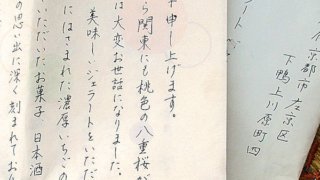 申し上げます。
ら関東にも桃色の八重桜が
は大変お世話になりました。
美味しいジェラートをいただ
にはさまれた濃厚いちごの
いただいたお菓子 日本酒
の思い出に深く刻まれており
京都市左京区
下鴨上川原町四